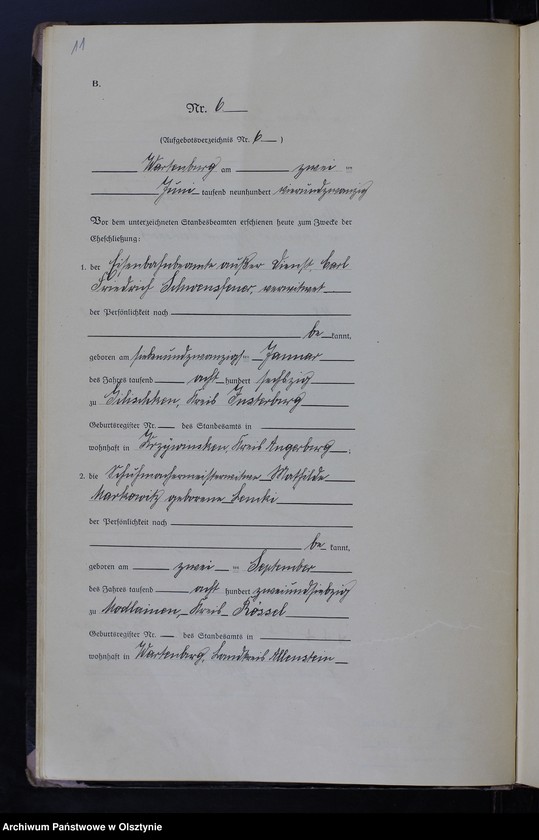 11
B.
Nr. 6
(Aufgebotsverzeichnis Nr. 6 )
Wartenburg am zwei ten
Juni tausend neunhundert vierundzwanzig
Vor dem unterzeichneten Standesbeamten erschienen heute zum Zwecke der
Eheschließung:
1. der Eisenbahnbeamte außer Dienst, Carl
Friedrich verwitwet
der Persönlichkeit nach
be kannt,
geboren am siebenundzwanzigsten Januar
des Jahres tausend acht hundert sechszig
zu Kreis Insterburg
Geburtsregister Nr. des Standesamts in
wohnhaft in Krzywinsken, Kreis Angerburg ;
2. die Schuhmachermeisterwitwe Mathilde
Markowitz geborene Lemki
der Persönlichkeit nach
be kannt,
geboren am zwei ten September
des Jahres tausend acht hundert zweiundsiebzig
zu Modlainen, Kreis Rössel
Geburtsregister Nr. des Standesamts in
wohnhaft in Wartenburg, Landkreis Allenstein
Archiwum Państwowe w Olsztynie